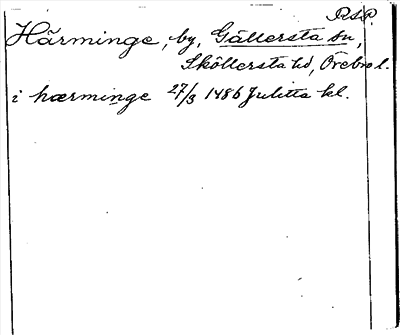 RSP
Härminge, by, Gällersta sn,
Sköllersta hd, Örebro l.
i hærminge 27/3 1486 Julitta kl.